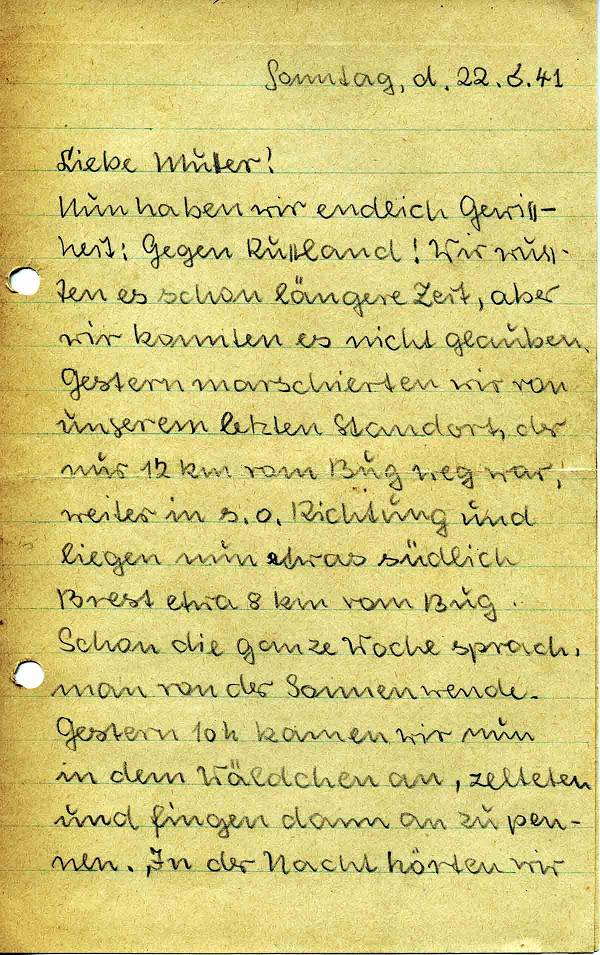 Sonntag, d. 22.6.41
Liebe Mutter!
Nun haben wir endlich Gewiß-
heit: Gegen Rußland! Wir wuß-
ten es schon längere Zeit, aber
wir konnten es nicht glauben.
Gestern marschierten wir von
unserem letzten Standort, der
nur 12 km vom Bug weg war,
weiter in s.o. Richtung und
liegen nun etwas südlich
Brest etwa 8 km vom Bug.
Schon die ganze Woche sprach
man von der Sonnenwende.
Gestern 10h kamen wir nun
in dem Wäldchen an, zelteten
und fingen dann an zu pen-
nen. In der Nacht hörten wir